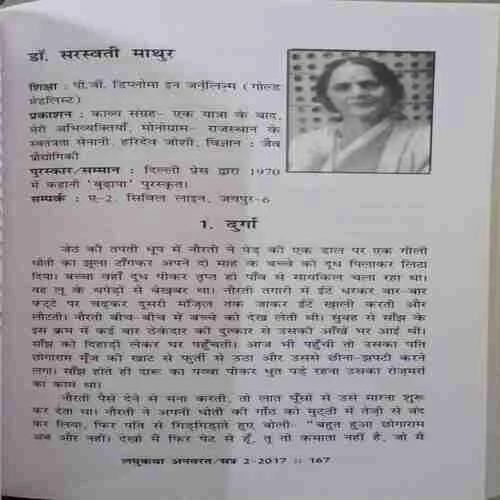 डॉ. सरस्वती माथुर
शिक्षा : पी.जी. डिप्लोमा इन जर्नलिज्म (गोल्ड
मेडलिस्ट)
प्रकाशन : काव्य संग्रह- एक यात्रा के बाद,
मेरी अभिव्यक्तियाँ, मोनोग्राम- राजस्थान के
स्वतंत्रता सेनानी हरिदेव जोशी, विज्ञान : जैव
प्रौद्योगिकी
पुरस्कार/सम्मान : दिल्ली प्रेस द्वारा 1970
में कहानी 'बुढ़ापा' पुरस्कृत।
सम्पर्क : ए-2, सिविल लाइन, जयपुर-6
1. दुर्गा
जेठ की तपती धूप में नौरती ने पेड़ की एक डाल पर एक गीली
धोती का झूला टाँगकर अपने दो माह के बच्चे को दूध पिलाकर लिटा
दिया। बच्चा वहाँ दूध पीकर तृप्त हो पाँव से सायकिल चला रहा था।
वह लू के थपेड़ों से बेखबर था। नौरती तगारी में ईंटें धरकर बार-बार
फट्टे पर चढ़कर दूसरी मंजिल तक जाकर ईंटें खाली करती और
लौटती। नौरती बीच-बीच में बच्चे को देख लेती थी। सुबह से साँझ के
इस क्रम में कई बार ठेकेदार की दुत्कार से उसकी आँखें भर आई थीं।
साँझ को दिहाड़ी लेकर घर पहुँचती। आज भी पहुँची तो उसका पति
छोगाराम मूँज की खाट से फुर्ती से उठा और उससे छीना-झपटी करने
लगा। साँझ होते ही दारू का पव्वा पीकर धुत पड़े रहना उसका रोजमर्रा
का काम था।
नौरती पैसे देने से मना करती, तो लात घूँसों से उसे मारना शुरू
कर देता था। नौरती ने अपनी धोती की गाँठ को मुट्ठी में तेजी से बंद
कर लिया, फिर पति से गिड़गिड़ाते हुए बोली- "बहुत हुआ छोगाराम
अब और नहीं। देखो मैं फिर पेट से हूँ, तू तो कमाता नहीं है, जो मैं
लघुकथा अनवरत/सत्र 2-2017 :: 167